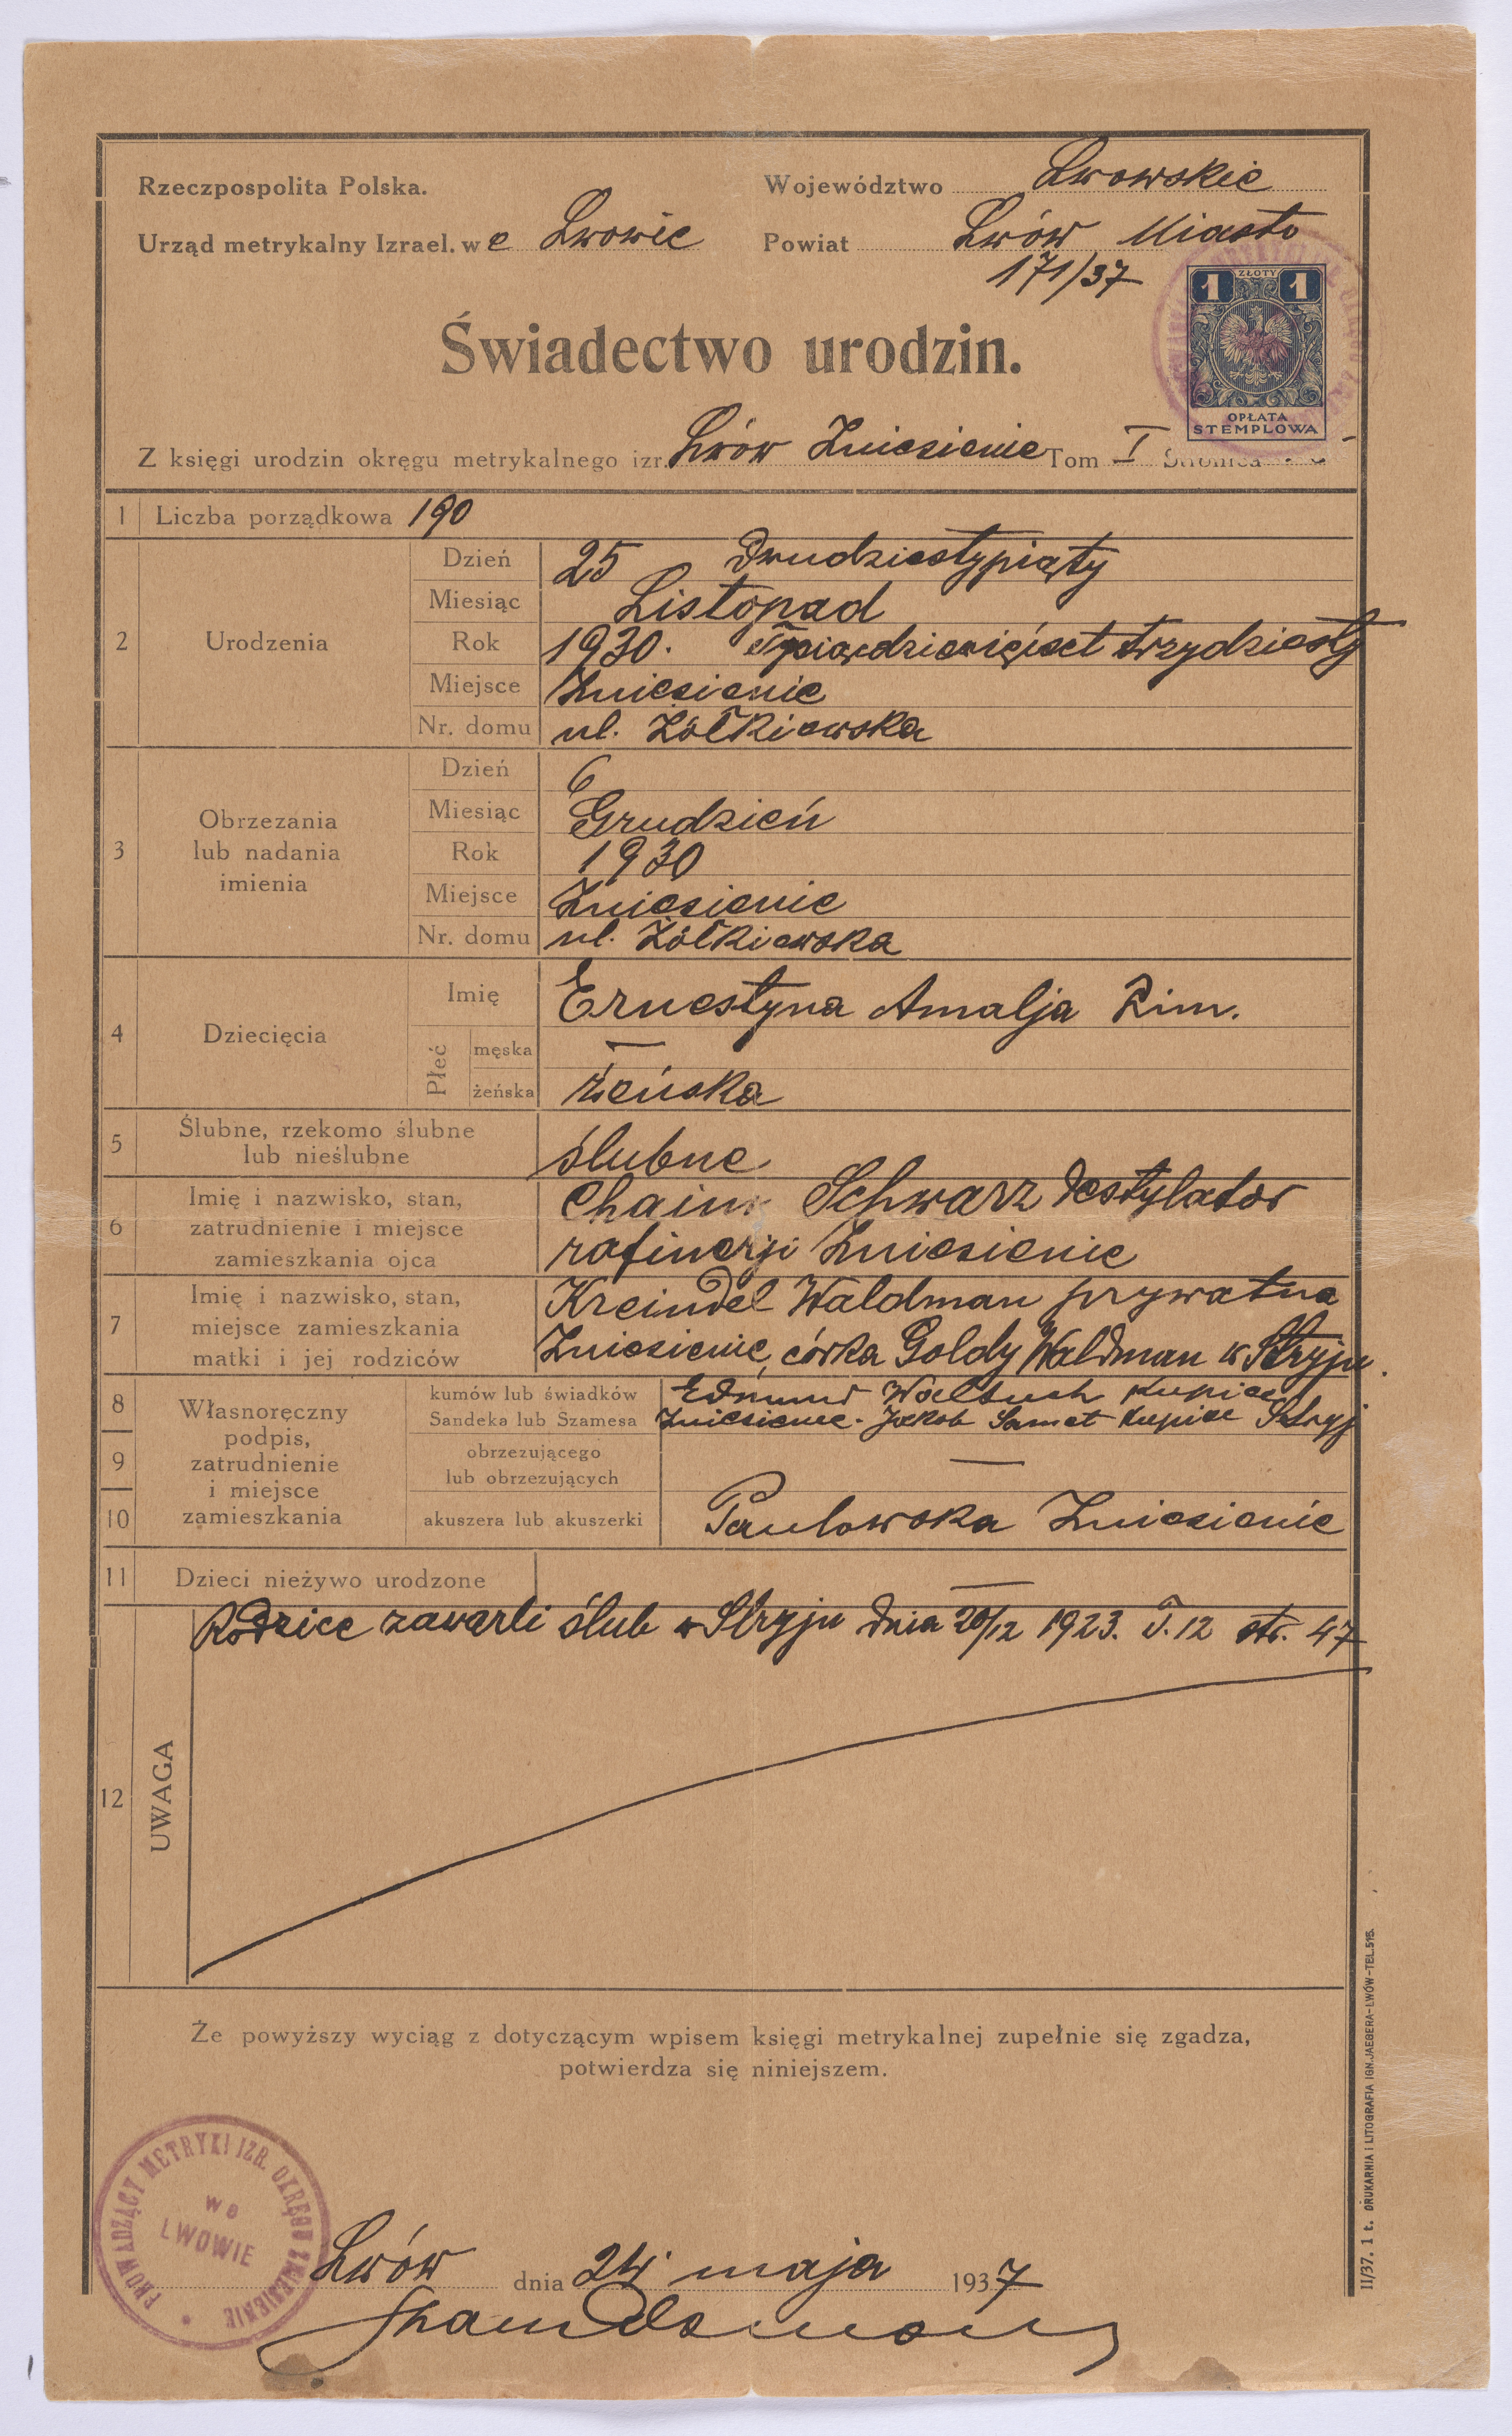 Rzeczpospolita Polska.
Województwo Lwowskie
Urząd metrykalny Izrael. we Lwowie
Powiat Lwów Miasto
171/37
1 ZŁOTY 1
OPŁATA
STEMPLOWA
Świadectwo urodzin.
Z księgi urodzin okręgu metrykalnego izr. Lwów Zniesienie Tom I Stronica
1 Liczba porządkowa 190
2 Urodzenia
Dzień 25 dwudziestypiąty
Miesiąc Listopad
Rok 1930. trzydziesty
Miejsce Zniesienie
Nr. domu ul. Żółkiewska
3 Obrzezania
lub nadania
imienia
Dzień 6
Miesiąc Grudzień
Rok 1930
Miejsce Zniesienie
Nr. domu ul. Żółkiewska
4 Dziecięcia
Imię Ernestyna Amalja Rim.
Płeć
męska —
żeńska żeńska
5 Ślubne, rzekomo ślubne
lub nieślubne
ślubne
6 Imię i nazwisko, stan,
zatrudnienie i miejsce
zamieszkania ojca
Chaim Schwarz destylator
rafinerji Zniesienie
7 Imię i nazwisko, stan,
miejsce zamieszkania
matki i jej rodziców
Kreindel Waldman prywatna
Zniesienie, córka Goldy Waldman w Stryju.
8
9
10
Własnoręczny
podpis,
zatrudnienie
i miejsce
zamieszkania
kumów lub świadków
Sandeka lub Szamesa
Edmund kupiec
Zniesienie. Jakob Samet kupiec Stryj
obrzezującego
lub obrzezujących
—
akuszera lub akuszerki Pawłowska Zniesienie
11 Dzieci nieżywo urodzone —
12 UWAGA
Rodzice zawarli ślub w Stryju dnia 20/12 1923. T. 12 str. 47
Że powyższy wyciąg z dotyczącym wpisem księgi metrykalnej zupełnie się zgadza,
potwierdza się niniejszem.
PROWADZĄCY METRYKI IZR. OKRĘGU ZNIESIENIE
WE
LWOWIE
Lwów dnia 24 maja 1937
II/37. 1 t. DRUKARNIA I LITOGRAFIA IGN. JAEGERA-LWÓW-TEL.515.